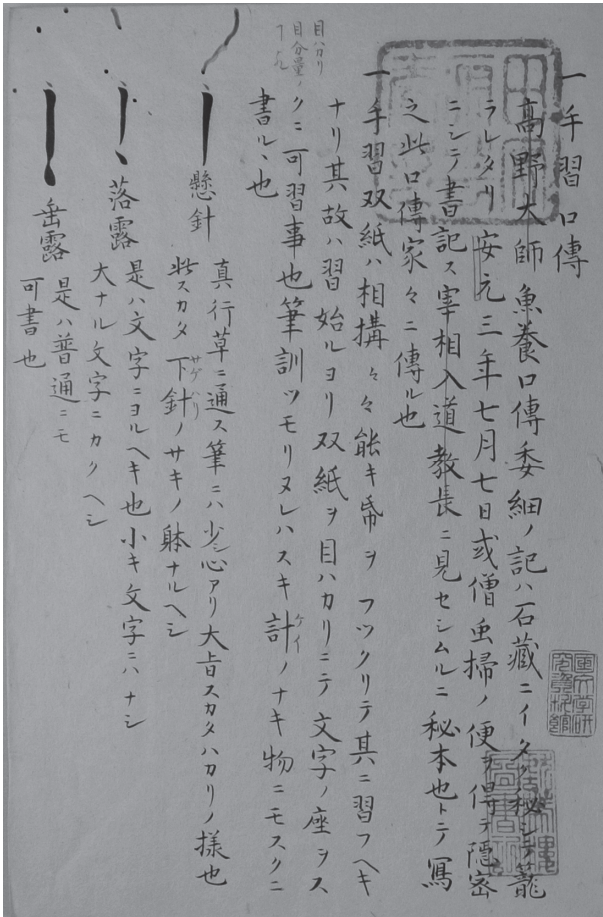 一手習口傳
高野大師魚養口傳委細ノ記ハ石藏ニイタク秘シテ籠
ラレタリ安元三年七月七日或僧虫掃ノ便ヲ得テ隱密
ニシテ書記ス宰相入道教長ニ見セシムルニ秘本也トテ寫
之此口傳家々ニ傳ル也
一手習双紙ハ相搆々々能キ帋ヲフツクリテ其ニ習フヘキ
ナリ其故ハ習始ルヨリ双紙ヲ目ハカリニテ文字ノ座ヲス
目ハカリ
目分量ノ
クニ可習事也筆訓ツモリヌレハスキ計ノナキ物ニモスクニ
ケイ
書ルヽ也
懸針
真行草ニ通ス筆ニハ少シ心アリ大旨スカタハカリノ様也
此スカタ下針ノサキノ躰ナルヘシ
サゲハリ
落露
是ハ文字ニヨルヘキ也小キ文字ニハナシ
大ナル文字ニカクヘシ
垂露
是ハ普通ニモ
可書也